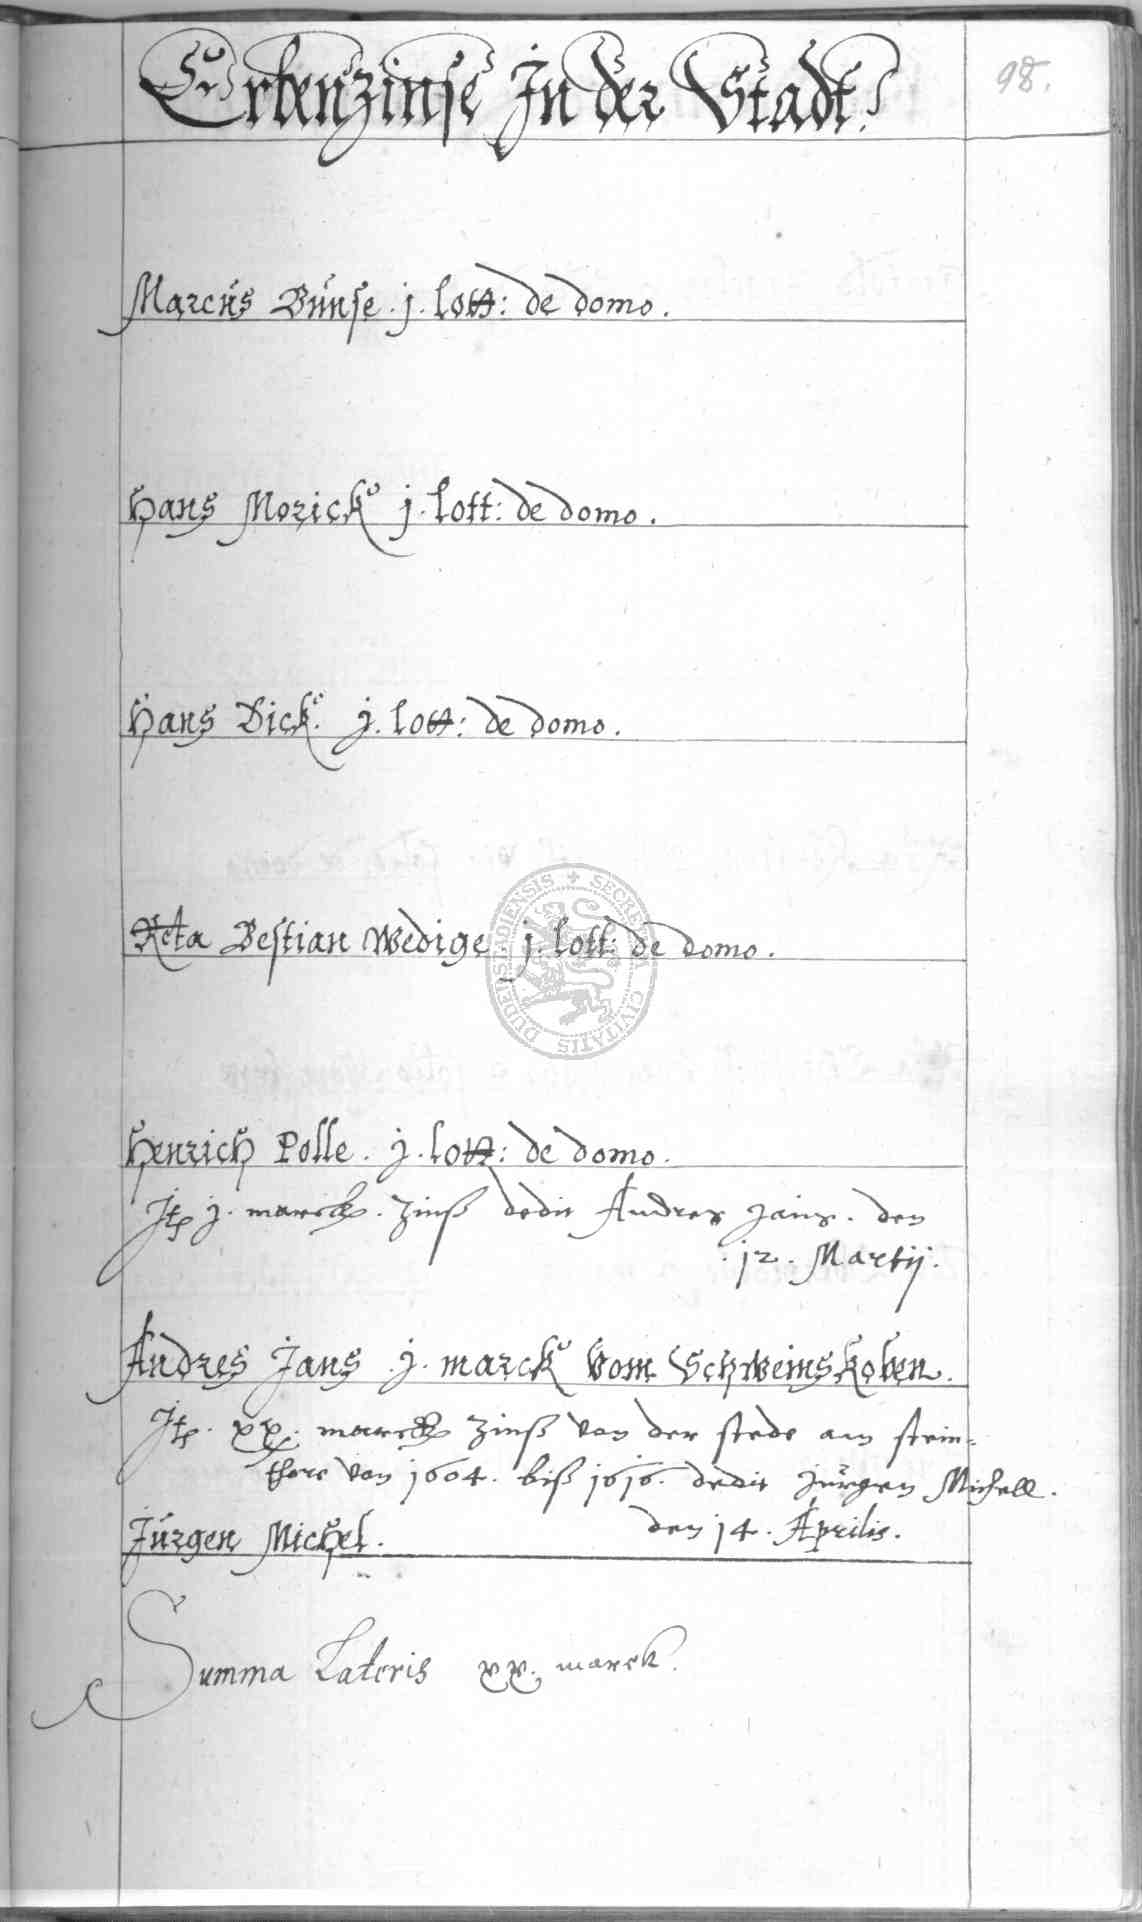 Erbenzinse In der Stadt.
98.
Marcus Bunse . j . lott : de domo .
Hans Morick j . lott : de domo .
Hans Dick . j . lott : de domo .
SECRETUM CIVITATIS DUDENSTADIENSIS
Rcta Bestian Wedige . j . lott : de domo .
Henrich Polle . j . lott : de domo .
Jtem j . marck . Zinß dedit Andres Jans . den
. 12 . Martij .
Andres Jans . j . marck vom Schweinskoben .
Jtem . xx . marck Zinß von der stede am stein-
thore von 1604 . biß 1616 . dedit Jürgen Michell .
den 14 . Aprilis .
Jürgen Michel .
Summa Lateris xx . marck .